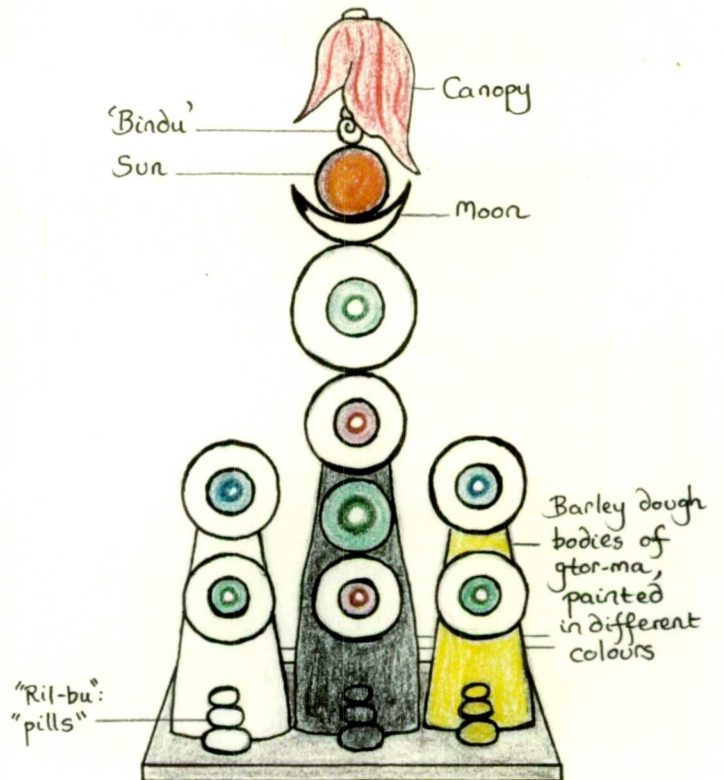 Canopy
'Bindu'
Sun
Moon
Barley dough
bodies of
gtor-ma,
painted
in different
colours
"Ril-bu":
"pills"